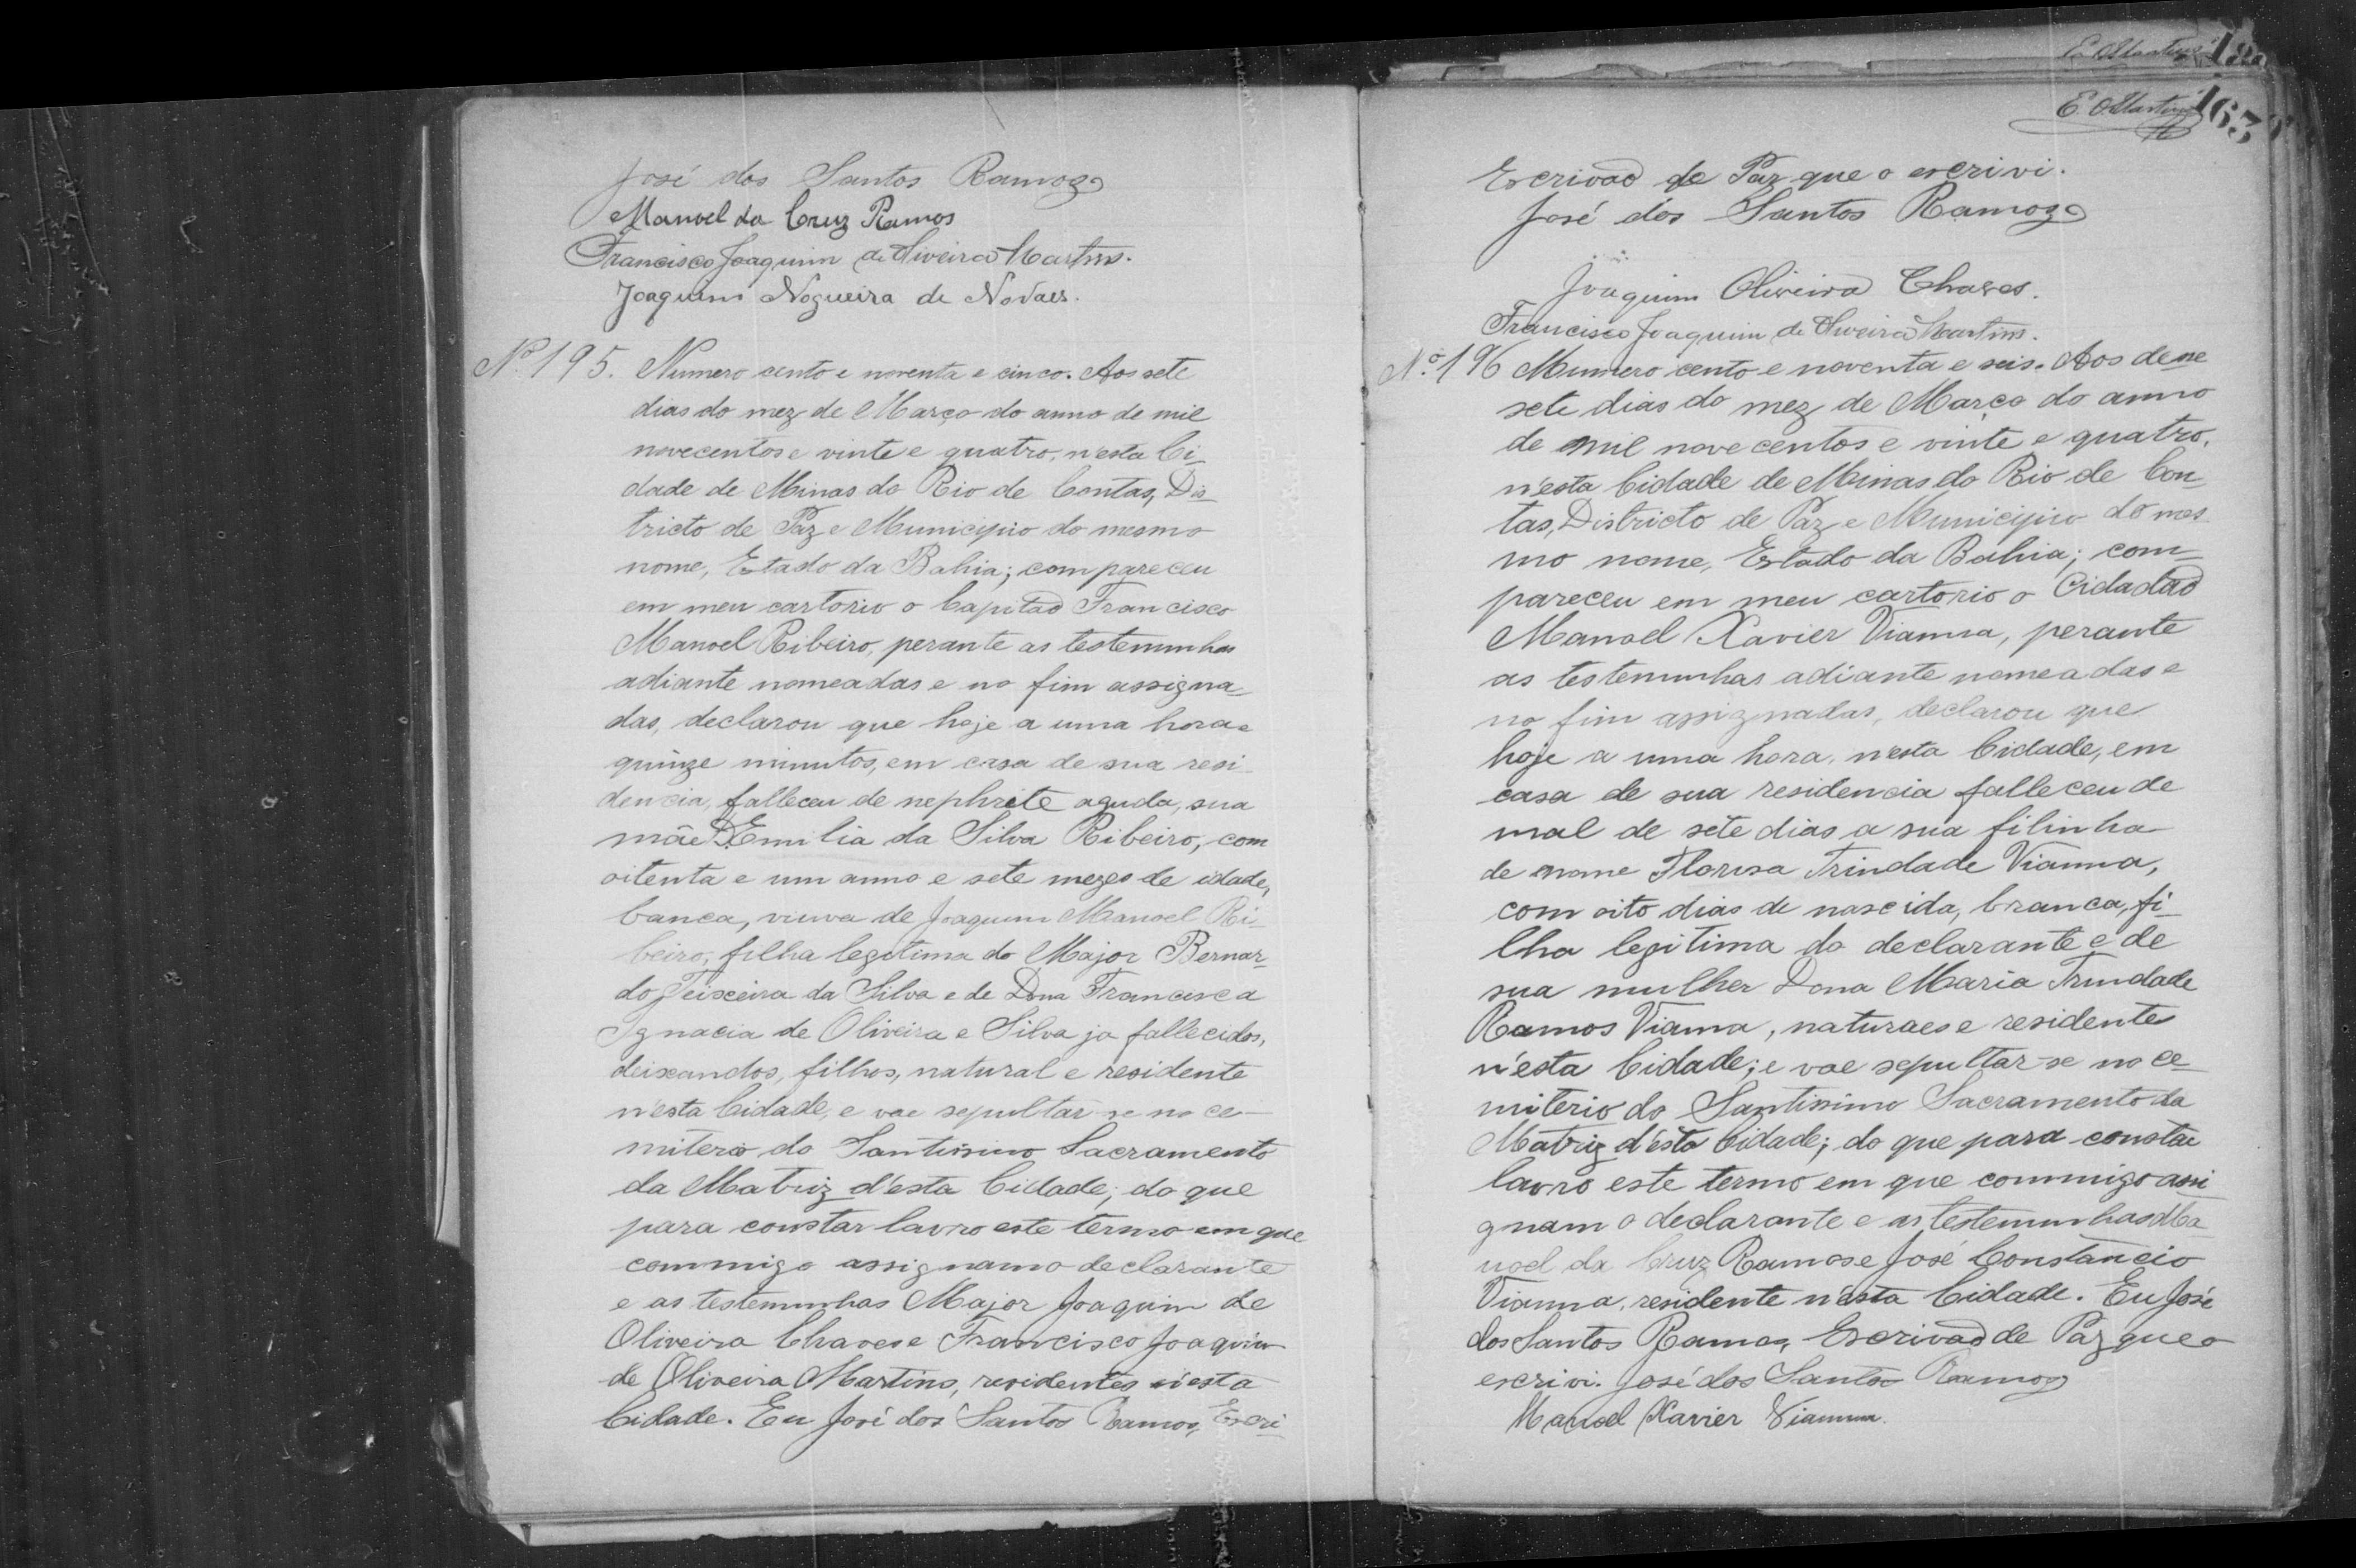 José dos Santos Ramos
Manoel da Cruz Ramos
Francisco Joaquim de Oliveira Martins.
Joaquim Nogueira de Novaes.
Nº 195. Numero cento e noventa e cinco. Aos sete
dias do mez de Março do anno de mil
novecentos e vinte e quatro, n'esta Ci-
dade de Minas do Rio de Contas, Dis-
tricto de Paz e Municipio do mesmo
nome, Estado da Bahia; compareceu
em meu cartorio o Capitão Francisco
Manoel Ribeiro, perante as testemunhas
adiante nomeadas e no fim assigna-
das, declarou que hoje a uma hora e
quinze minutos, em casa de sua resi-
dencia, falleceu de nephrite aguda, sua
mãe D. Emilia da Silva Ribeiro, com
oitenta e um anno e sete mezes de idade,
banca, viuva de Joaquim Manoel Ri-
beiro, filha legitima do Major Bernar-
do Teixeira da Silva e de Dona Francisca
Ignacia de Oliveira e Silva ja fallecidos,
deixandos, filhos, natural e residente
n'esta Cidade, e vae sepultar-se no ce-
miterio do Santissimo Sacramento
da Matriz d'esta Cidade; do que
para constar lavro este termo em que
commigo assignam o declarante
e as testemunhas Major Joaquim de
Oliveira Chaves e Francisco Joaquim
de Oliveira Martins, residentes n'esta
Cidade. Eu José dos Santos Ramos, Escri-
E. O. Martins
E. O. Martins 163
Escrivão de Paz que o escrivi.
José dos Santos Ramos
Joaquim Oliveira Chaves.
Francisco Joaquim de Oliveira Martins.
Nº 196 Numero cento e noventa e seis. Aos deze
sete dias do mez de Março do anno
de mil novecentos e vinte e quatro,
n'esta Cidade de Minas do Rio de Con-
tas, Districto de Paz e Municipio do mes-
mo nome, Estado da Bahia; com-
pareceu em meu cartorio o Cidadão
Manoel Xavier Vianna, perante
as testemunhas adiante nomeadas e
no fim assignadas, declarou que
hoje a uma hora, nesta Cidade, em
casa de sua residencia falleceu de
mal de sete dias a sua filinha
de nome Florisa Trindade Vianna,
com oito dias de nascida, branca, fi-
lha legitima do declarante e de
sua mulher Dona Maria Trindade
Ramos Vianna, naturaes e residentes
n'esta Cidade; e vae sepultar-se no ce-
miterio do Santissimo Sacramento da
Matriz d'esta Cidade; do que para constar
lavro este termo em que commigo assi-
gnam o declarante e as testemunhas Ma-
noel da Cruz Ramos e José Constancio
Vianna, residente n'esta Cidade. Eu José
dos Santos Ramos, Escrivão de Paz que o
escrivi. José dos Santos Ramos
Manoel Xavier Vianna.